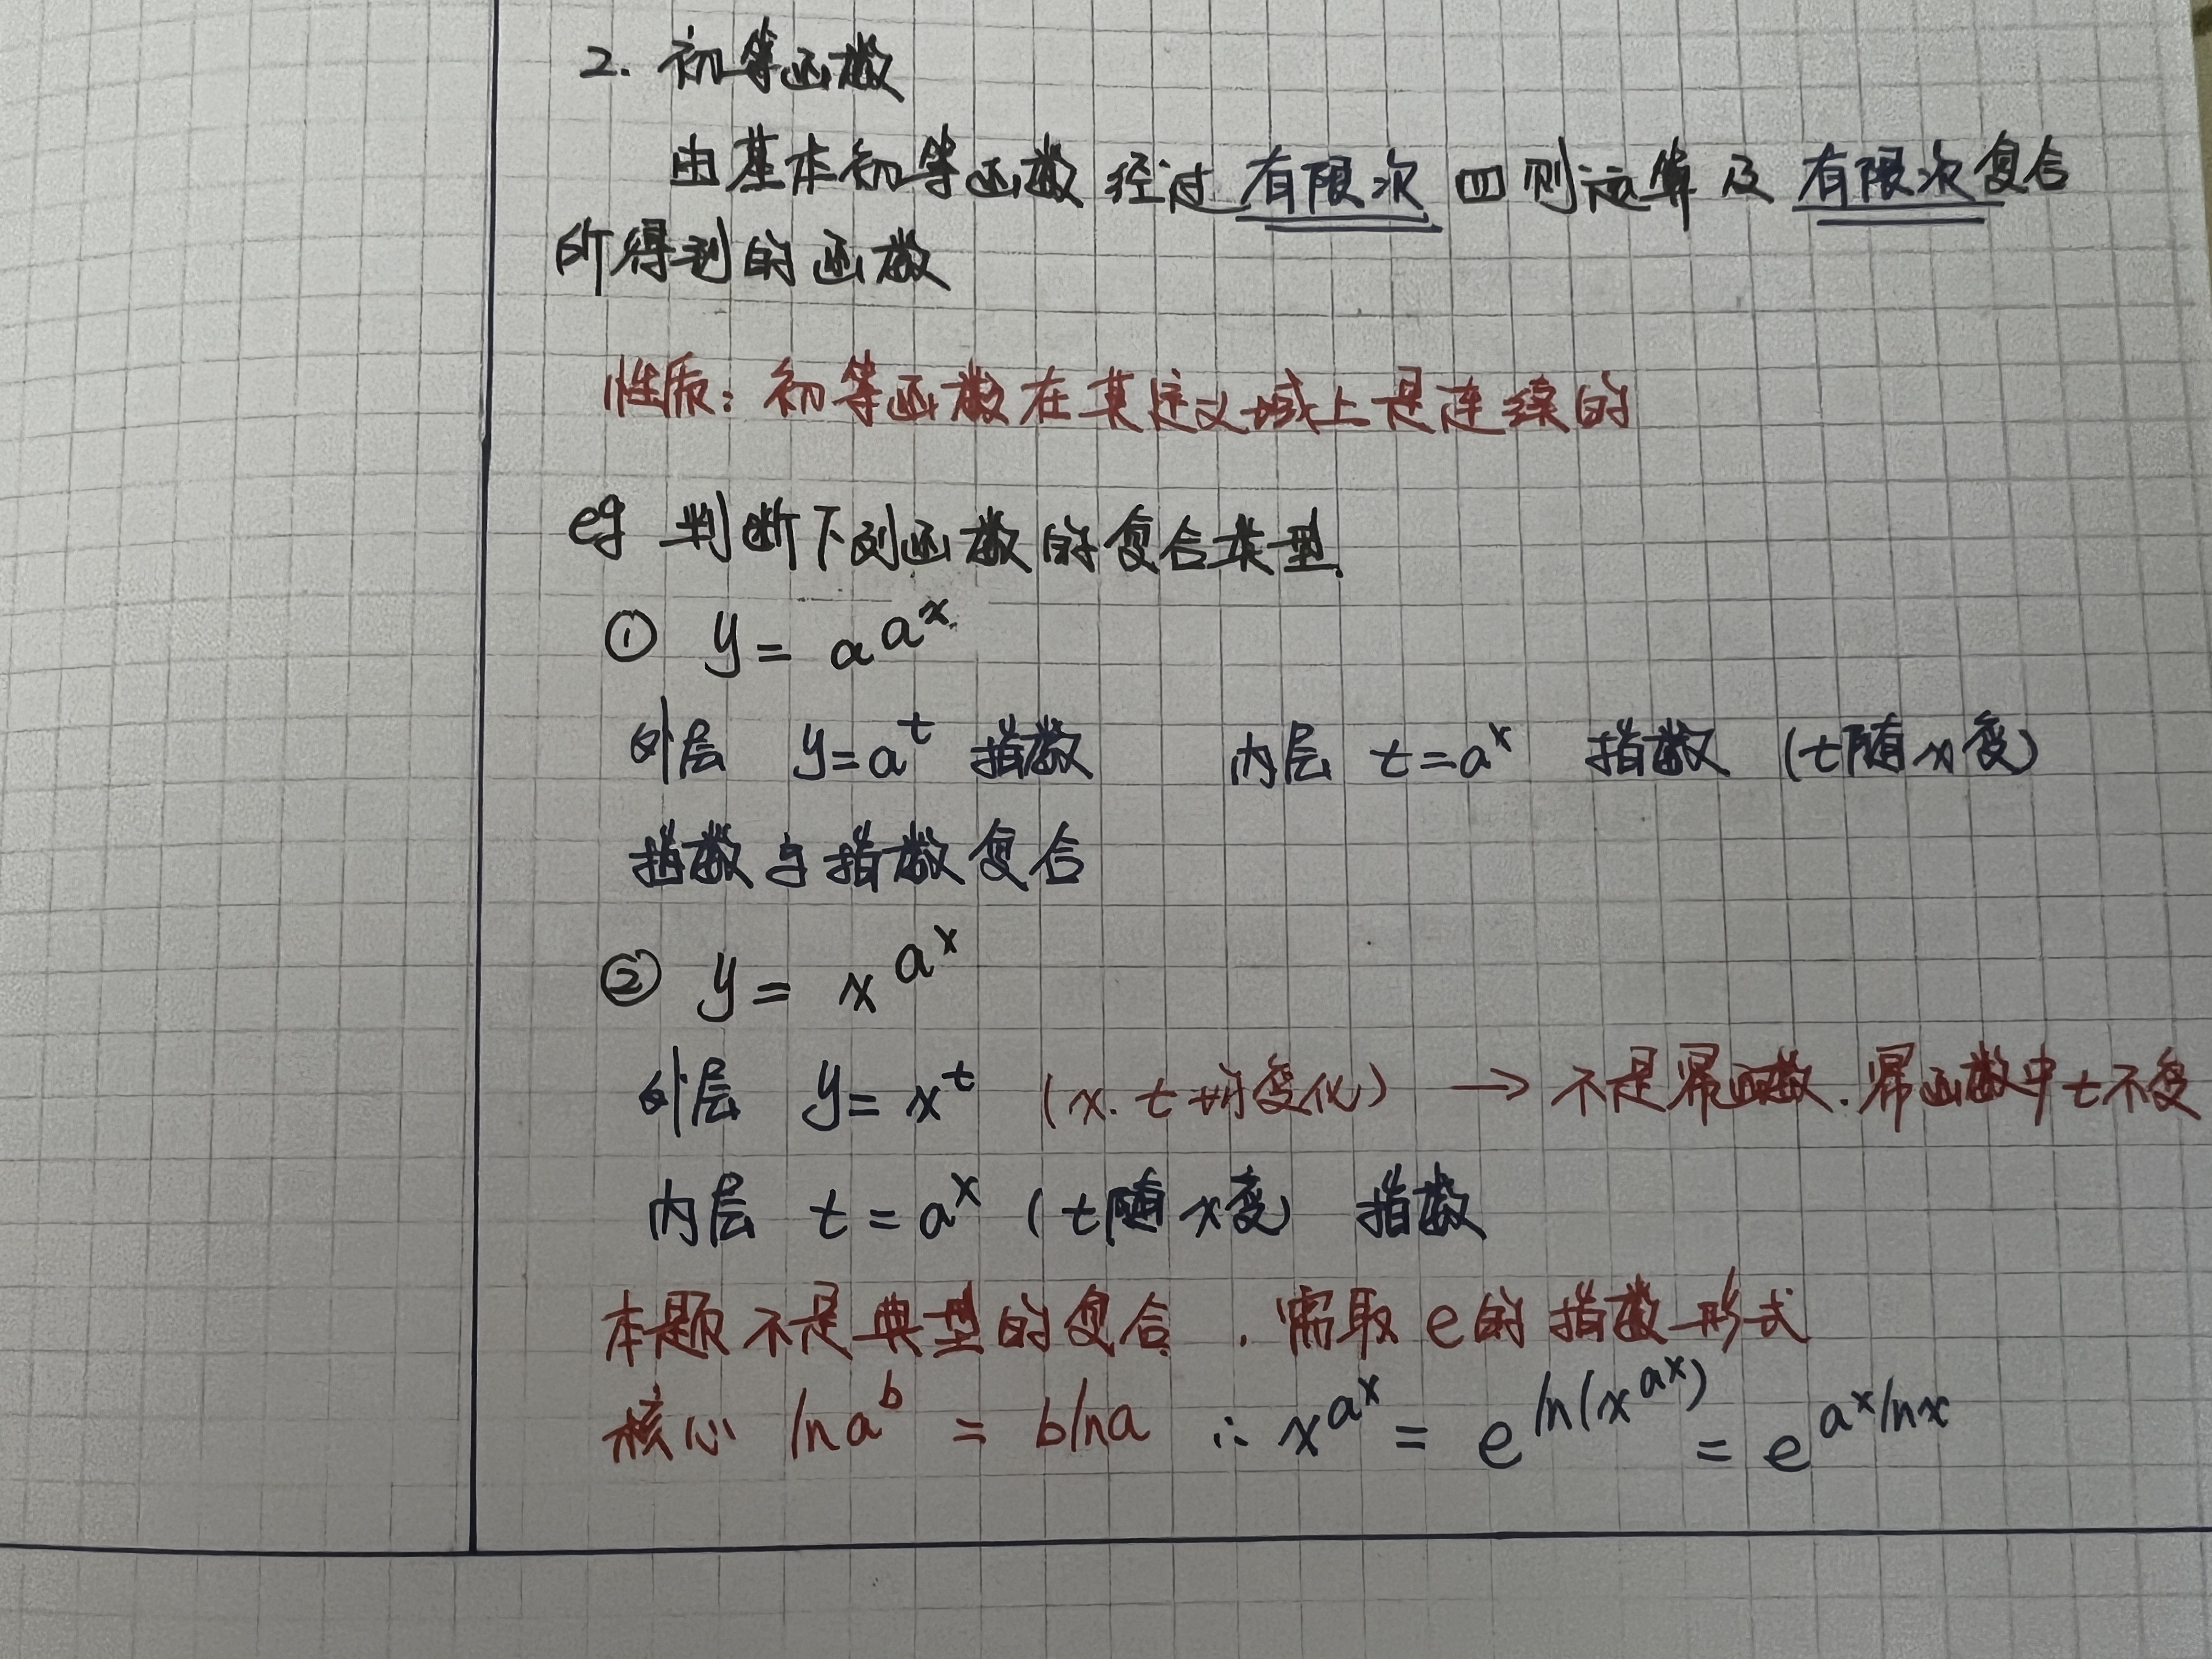 2. 初等函数
由基本初等函数经过有限次四则运算及有限次复合
所得到的函数
性质：初等函数在其定义域上是连续的
eg 判断下列函数的复合类型.
① y = a^{a^x}
外层 y=a^t 指数 内层 t=a^x 指数 (t随x变)
指数与指数复合
② y = x^{a^x}
外层 y=x^t (x.t均变化) → 不是幂函数.幂函数中t不变
内层 t=a^x (t随x变) 指数
本题不是典型的复合.需取e的指数形式
核心 lna^b = blna ∴ x^{a^x} = e^{ln(x^{a^x})} = e^{a^x lnx}